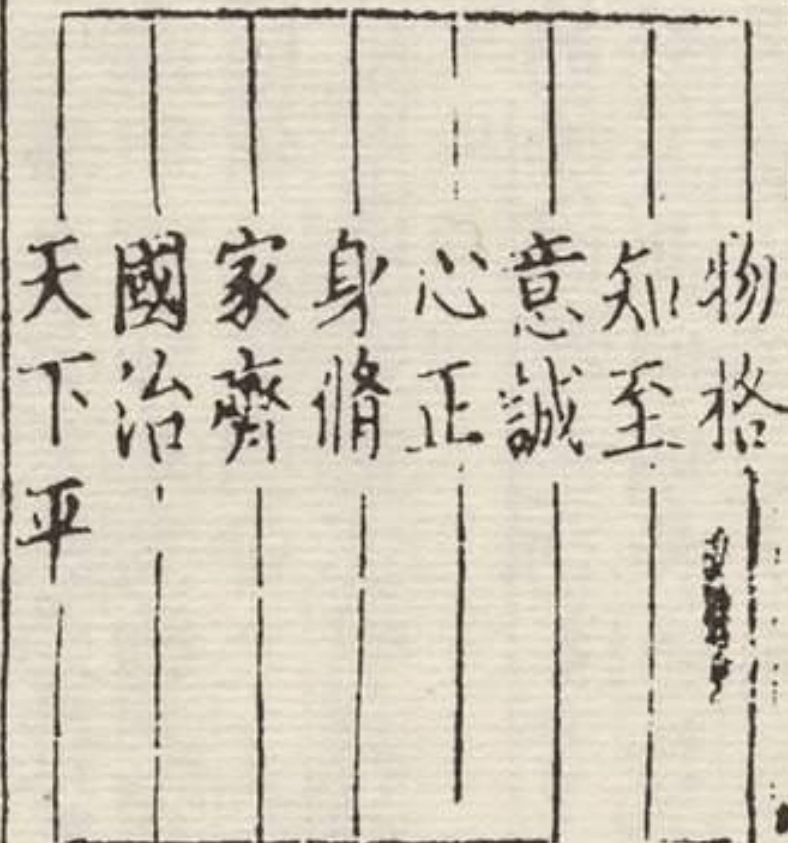 物格
知至
意誠
心正
身脩
家齊
國治
天下平